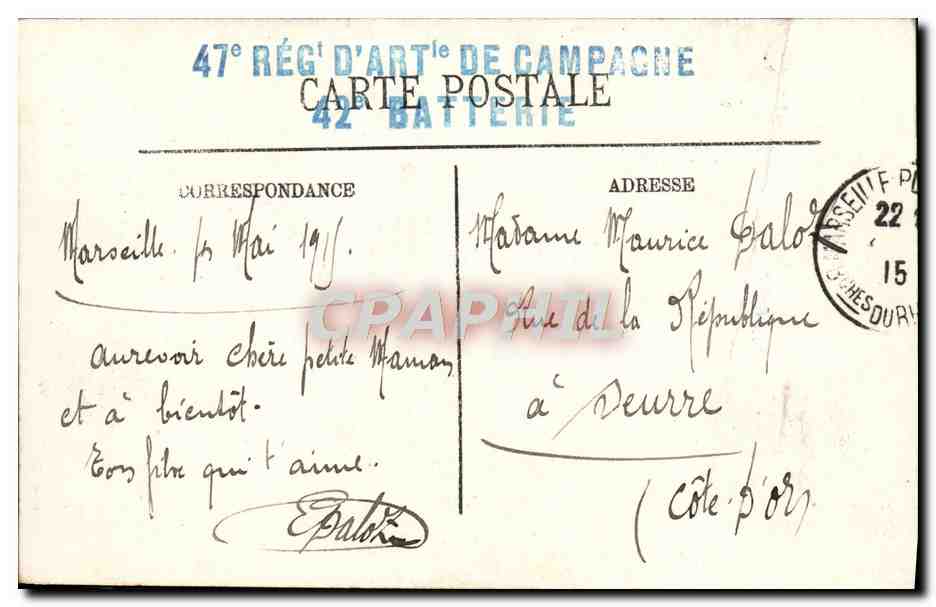 47e RÉGt D'ARTie DE CAMPAGNE
CARTE POSTALE
42e BATTERIE
CORRESPONDANCE
Marseille Mai 1915.
aurevoir chère petite Maman
et à bientôt.
Ton fils qui t'aime.
ADRESSE
Madame Maurice
Rue de la République
à Seurre
(Côte-d'Or)
MARSEILLE
22
15
DU RH
CPAPHIL